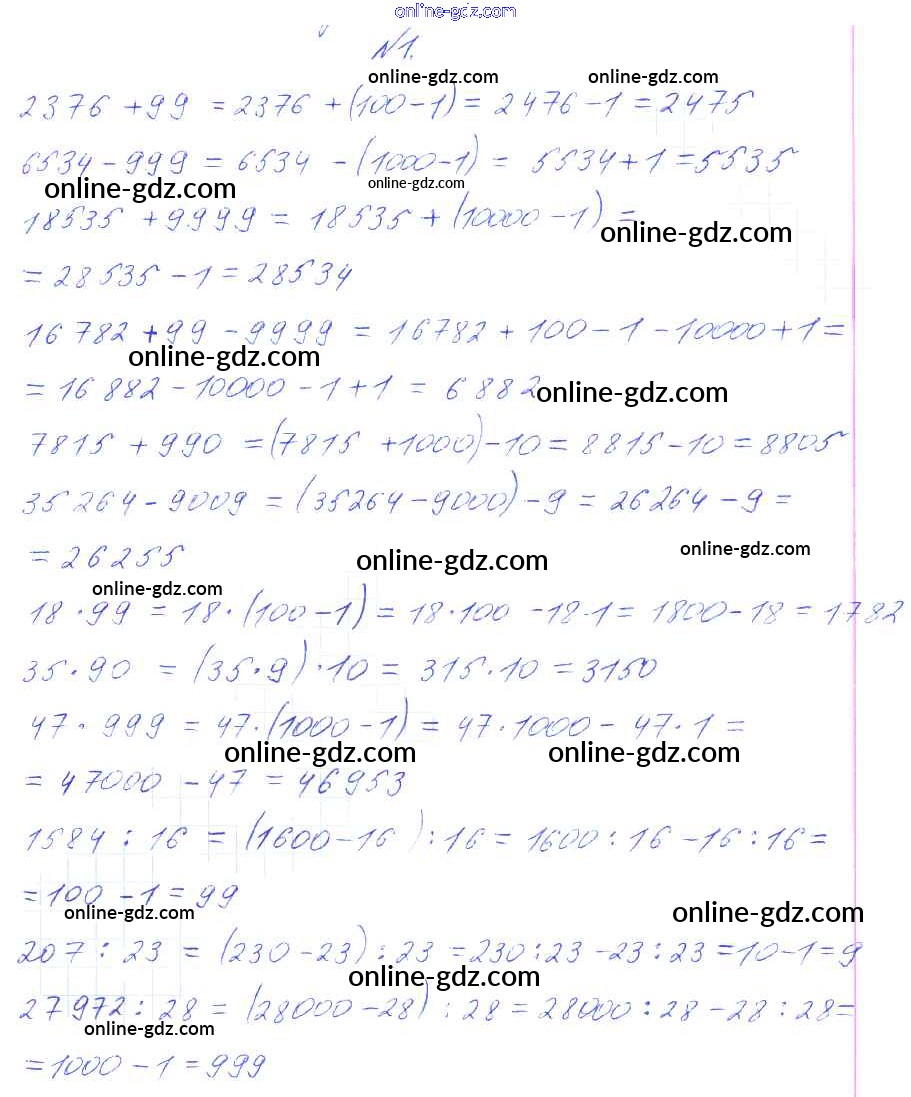 online-gdz.com
N1.
online-gdz.com online-gdz.com
2376 + 99 = 2376 + (100 - 1) = 2476 - 1 = 2475
6534 - 999 = 6534 - (1000 - 1) = 5534 + 1 = 5535
online-gdz.com online-gdz.com
18535 + 9999 = 18535 + (10000 - 1) =
online-gdz.com
= 28535 - 1 = 28534
16782 + 99 - 9999 = 16782 + 100 - 1 - 10000 + 1 =
online-gdz.com
= 16882 - 10000 - 1 + 1 = 6882
online-gdz.com
7815 + 990 = (7815 + 1000) - 10 = 8815 - 10 = 8805
35264 - 9009 = (35264 - 9000) - 9 = 26264 - 9 =
= 26255
online-gdz.com online-gdz.com
online-gdz.com
18 · 99 = 18 · (100 - 1) = 18 · 100 - 18 · 1 = 1800 - 18 = 1782
35 · 90 = (35 · 9) · 10 = 315 · 10 = 3150
47 · 999 = 47 · (1000 - 1) = 47 · 1000 - 47 · 1 =
online-gdz.com online-gdz.com
= 47000 - 47 = 46953
1584 : 16 = (1600 - 16) : 16 = 1600 : 16 - 16 : 16 =
= 100 - 1 = 99
online-gdz.com online-gdz.com
207 : 23 = (230 - 23) : 23 = 230 : 23 - 23 : 23 = 10 - 1 = 9
online-gdz.com
27972 : 28 = (28000 - 28) : 28 = 28000 : 28 - 28 : 28 =
online-gdz.com
= 1000 - 1 = 999